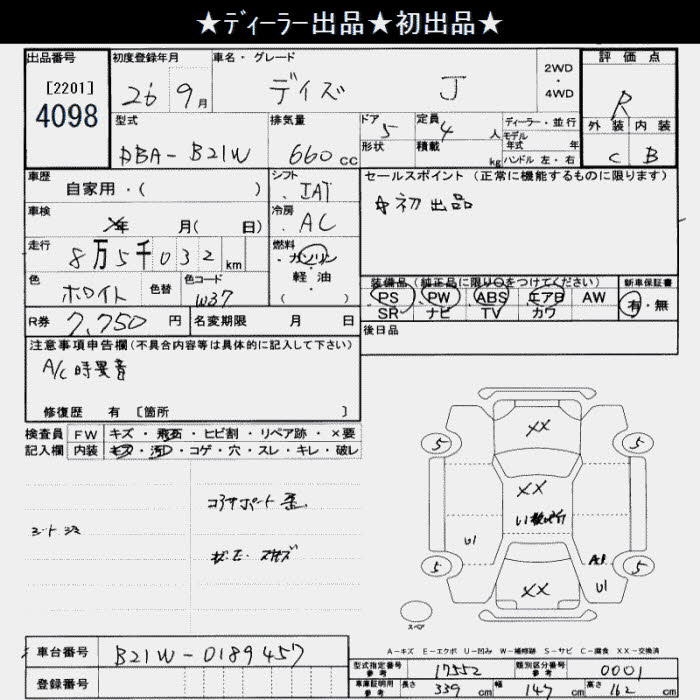 ★ディーラー出品★初出品★
出品番号
[2201]
4098
初度登録年月
26 9月
車名・グレード
デイズ J
2WD
・
4WD
評価点
R
外装 内装
C B
型式
DBA-B21W
排気量
660cc
ドア 5
形状
定員 4人
積載 kg
ディーラー・並行
モデル年式 年
ハンドル 左・右
車歴
自家用・( )
シフト
IAT
セールスポイント (正常に機能するものに限ります)
初出品
車検
年 月( 日)
冷房
AC
走行
8万5千032km
燃料
・ガソリン
・軽油
( )
色
ホワイト
色替
色コード
W37
装備品(純正品に限り○をつけてください)
PS PW ABS エアB AW
SR ナビ TV カワ
新車保証書
有・無
R券 7,750円
名変期限 月 日
後日品
注意事項申告欄(不具合内容等は具体的に記入して下さい)
A/C時異音
修復歴 有 [箇所 ]
検査員 FW キズ・飛石・ヒビ割・リペア跡・×要
記入欄 内装 キズ・汚れ・コゲ・穴・スレ・キレ・破レ
コアサポート
XX
5 5
XX
U1
5 5
XX
U1
スペア
A-キズ E-エクボ U-凹み W-補修跡 S-サビ C-腐食 XX-交換済
車台番号 B21W-0189457
登録番号
型式指定番号 参考 17552
類別区分番号 参考 0001
車庫証明用 参考 長さ 339cm 幅 147cm 高さ 162cm